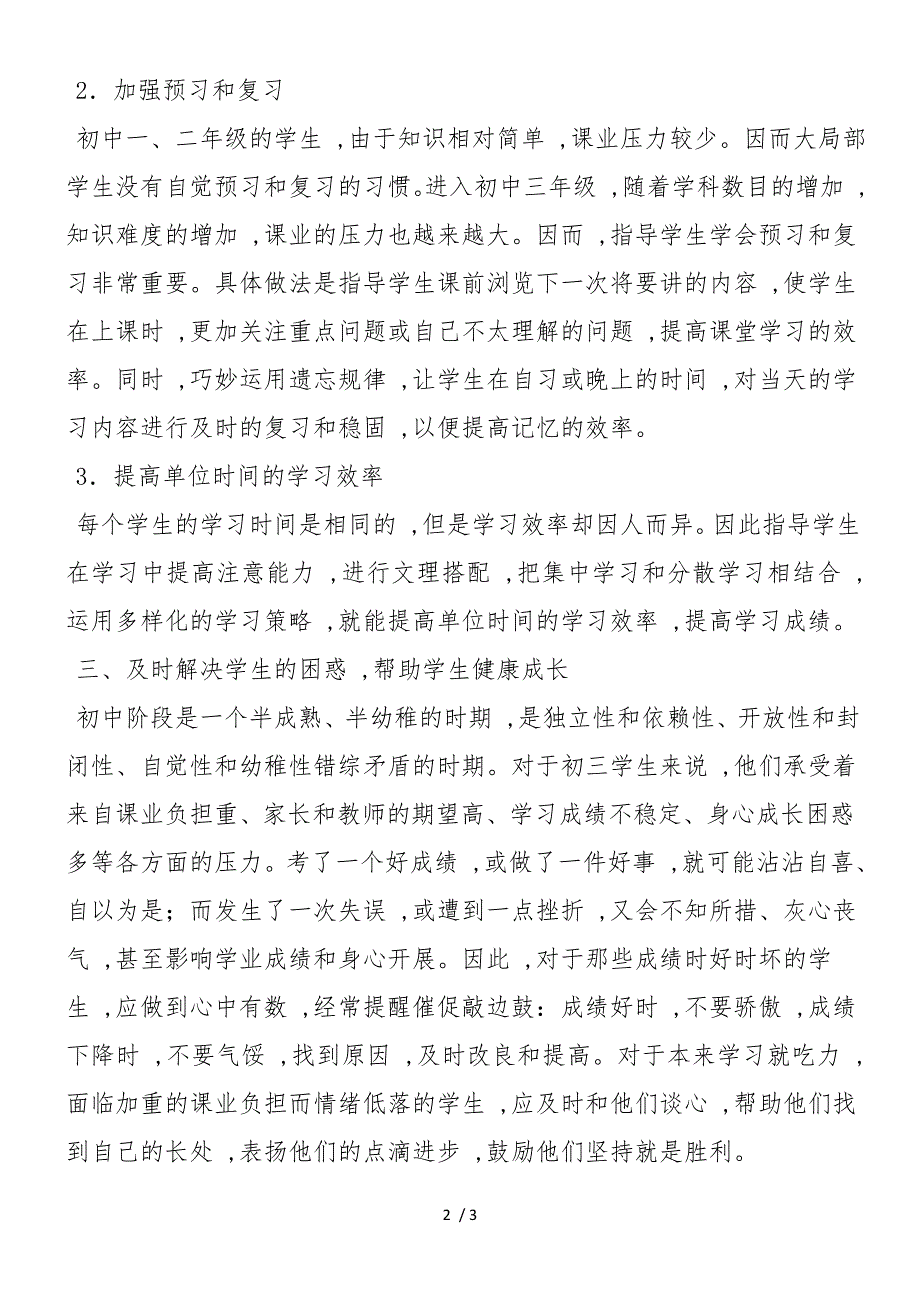 2．加强预习和复习
初中一、二年级的学生 ,由于知识相对简单 ,课业压力较少。因而大局部
学生没有自觉预习和复习的习惯。进入初中三年级 ,随着学科数目的增加 ,
知识难度的增加 ,课业的压力也越来越大。因而 ,指导学生学会预习和复
习非常重要。具体做法是指导学生课前浏览下一次将要讲的内容 ,使学生
在上课时 ,更加关注重点问题或自己不太理解的问题 ,提高课堂学习的效
率。同时 ,巧妙运用遗忘规律 ,让学生在自习或晚上的时间 ,对当天的学
习内容进行及时的复习和稳固 ,以便提高记忆的效率。
3．提高单位时间的学习效率
每个学生的学习时间是相同的 ,但是学习效率却因人而异。因此指导学生
在学习中提高注意能力 ,进行文理搭配 ,把集中学习和分散学习相结合 ,
运用多样化的学习策略 ,就能提高单位时间的学习效率 ,提高学习成绩。
三、及时解决学生的困惑 ,帮助学生健康成长
初中阶段是一个半成熟、半幼稚的时期 ,是独立性和依赖性、开放性和封
闭性、自觉性和幼稚性错综矛盾的时期。对于初三学生来说 ,他们承受着
来自课业负担重、家长和教师的期望高、学习成绩不稳定、身心成长困惑
多等各方面的压力。考了一个好成绩 ,或做了一件好事 ,就可能沾沾自喜、
自以为是；而发生了一次失误 ,或遭到一点挫折 ,又会不知所措、灰心丧
气 ,甚至影响学业成绩和身心开展。因此 ,对于那些成绩时好时坏的学
生 ,应做到心中有数 ,经常提醒催促敲边鼓：成绩好时 ,不要骄傲 ,成绩
下降时 ,不要气馁 ,找到原因 ,及时改良和提高。对于本来学习就吃力 ,
面临加重的课业负担而情绪低落的学生 ,应及时和他们谈心 ,帮助他们找
到自己的长处 ,表扬他们的点滴进步 ,鼓励他们坚持就是胜利。
2 / 3